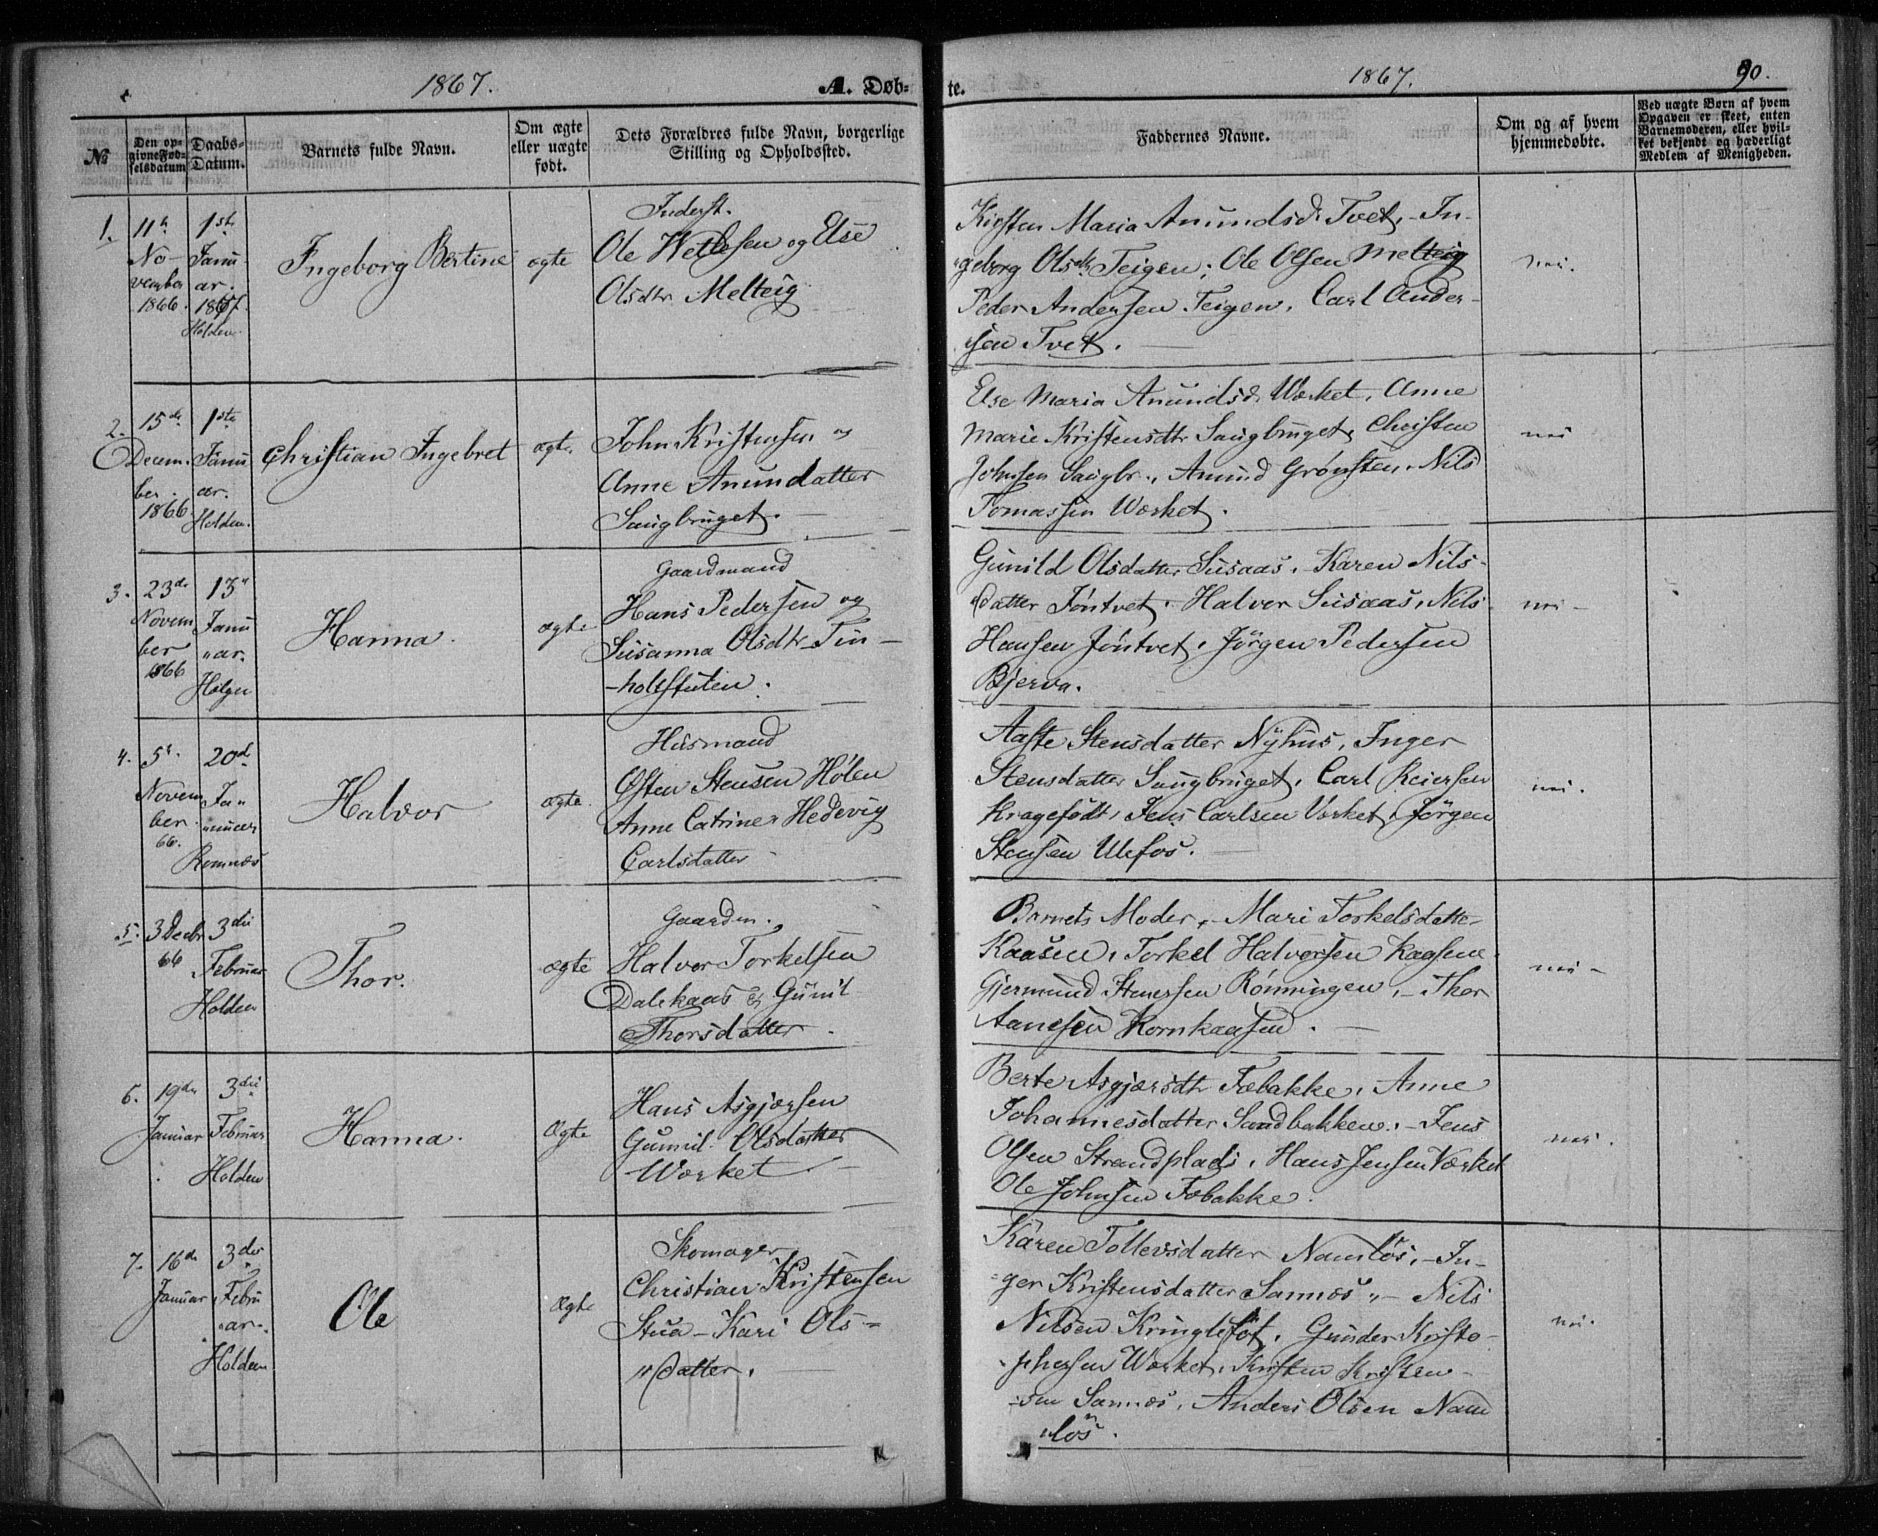 1867.
A. Døb-
te.
1867.
90.
№
Den op-
givne Fød-
selsdatum
Daabs-
Datum.
Barnets fulde Navn.
Om ægte
eller uægte
født.
Dets Forældres fulde Navn, borgerlige
Stilling og Opholdssted.
Faddernes Navne.
Om og af hvem
hjemmedøbte.
Ved uægte Børn af hvem
Opgaven er skeet, enten
Barnemoderen, eller hvil-
ket bekjendt og hæderligt
Medlem af Menigheden.
1.
11te
No-
vember
1866.
1ste
Janu-
ar.
1867.
Holden
Ingeborg Bertine
ægte
Inderst.
Ole Wetlesen og Else
Olsdtr Melteig
Kirsten Maria Anundsd. Tvet, In-
geborg Olsdr Teigen, Ole Olsen Melteig
Peder Andersen Teigen, Carl Ander-
sen Tvet.
nei.
2.
15de
Decem-
ber.
1866
1ste
Janu
ar.
Holden.
Christian Ingebret
ægte.
John Kristensen og
Anne Anundatter
Saugbruget.
Else Maria Anundsd. Wærket, Anne
Marie Kristensdtr Saugbruget, Christen
Johnsen Saugbr., Amund Grønsten, Nils
Tomassen Wærket.
nei
3.
23de
Novem
ber
1866
13"
Janu
"ar.
Helgen
Hanna.
ægte
Gaardmand
Hans Pedersen og
Susanna Olsdtr Tin-
-holtstulen.
Gunild Olsdatter Susaas, Karen Nils-
datter Jøntvet, Halvor Susaas, Nils
Hansen Jøntvet, Jørgen Pedersen
Bjerva.
nei -
4.
5te
Novem
ber.
66.
20de
Ja-
"nuar
Romnæs
Halvor
ægte.
Husmand
Østen Stensen Hølen
Anne Catrine Hedevig
Carlsdatter
Aaste Stensdatter Nyhus, Inger
Stensdatter Saugbruget, Carl Reiersen
Kragefødt, Jens Carlsen Værket, Jørgen
Stensen Ulefos.
nei.
5.
3 Decbr
66
3die
Februar
Holden
Thor.
ægte
Gaardm.
Halvor Torkelsen
Dalekaas og Gunil
Thorsdatter.
Barnets Moder, Mari Torkelsdatter
Kaasen, Torkel Halvorsen Kaasene
Gjermund Stenersen Rønningen, Thor
Aanesen Kornkaasen.
nei -
6.
19de
Januar
3die
Februar
Holden
Hanna.
Ægte
Hans Asgjærsen
Gunnil. Olsdatter
Wærket
Berte Asgjærsdtr Fæbakke, Anne
Johannesdatter Sandbakken, Jens
Olsen Strandplads, Hans Jensen Værket
Ole Johnsen Fæbakke.
nei.
7.
16de
Januar
3die
Febru
"ar.
Holden
Ole
Ægte
Skomager
Christian Kristensen
Stua - Kari Ols-
"datter.
Karen Tollevsdatter Namløs, In-
ger Kristensdatter Sannæs, Nils
Nilsen Kringlefot, Gunder Kristo-
phersen Wærket, Kristen Kristen-
sen Sannæs, Anders Olsen Nam
"løs.
nei.